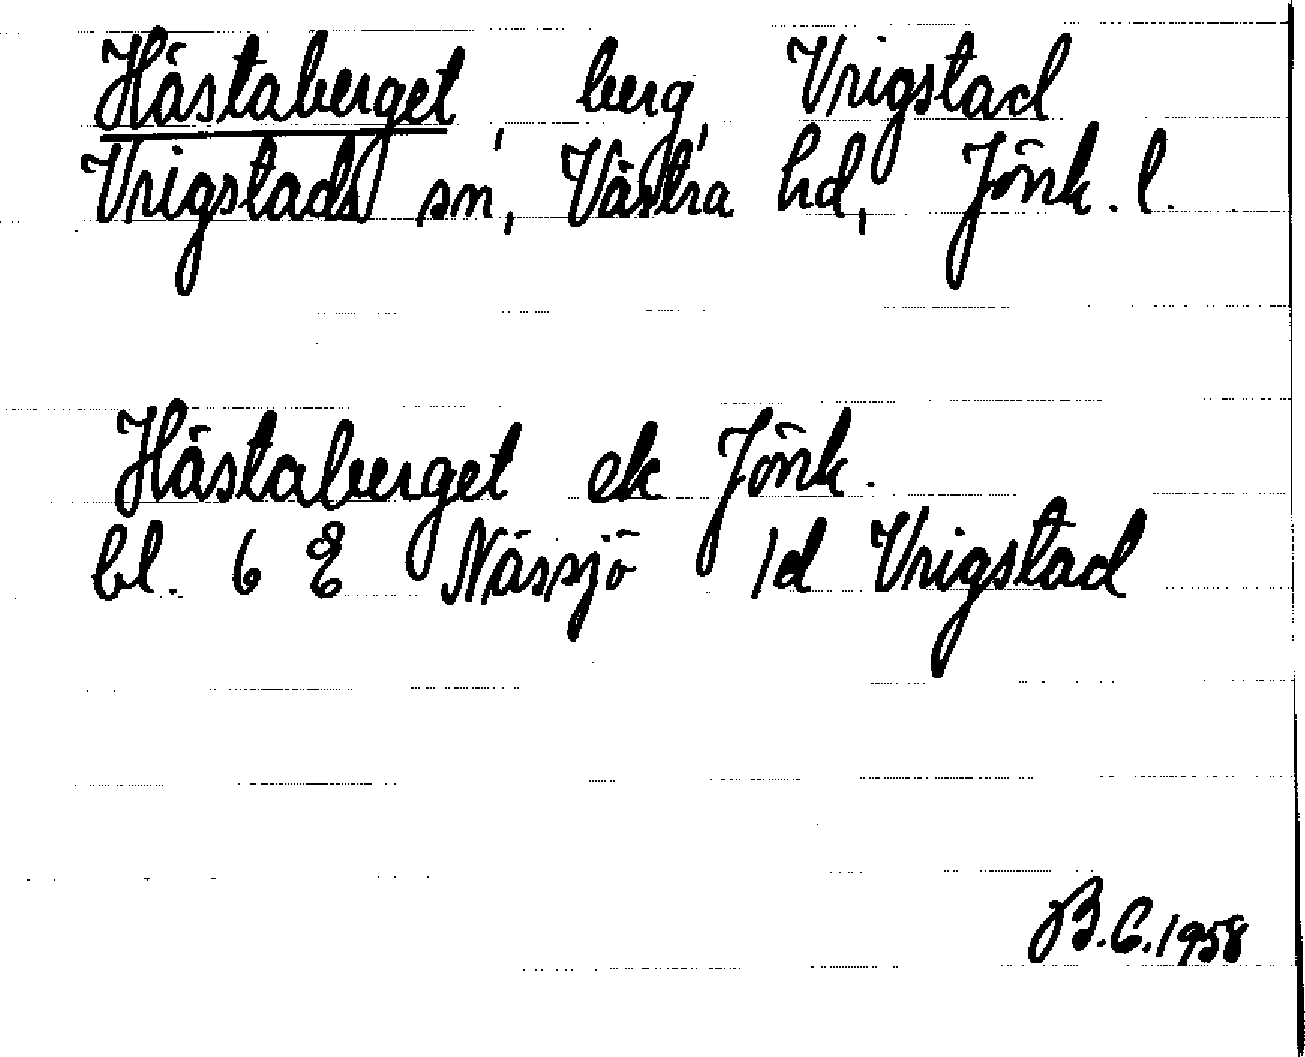 Hästaberget, berg, Vrigstad
Vrigstads sn, Västra hd, Jönk. l.
Hästaberget ek Jönk.
bl. 6 E Nässjö 1d Vrigstad
B.C.1958